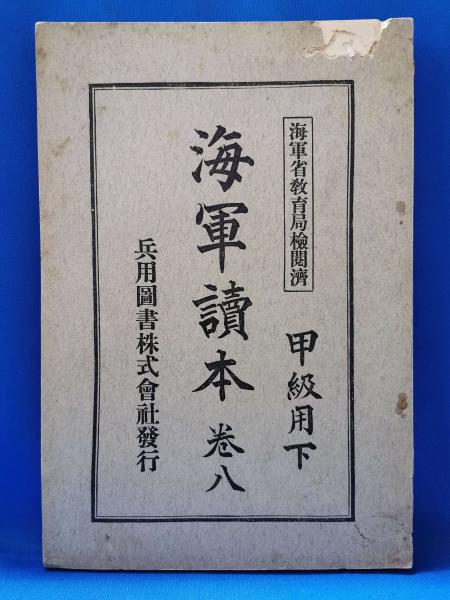 海軍省敎育局檢閱濟
甲級用下
海軍讀本 卷八
兵用圖書株式會社發行